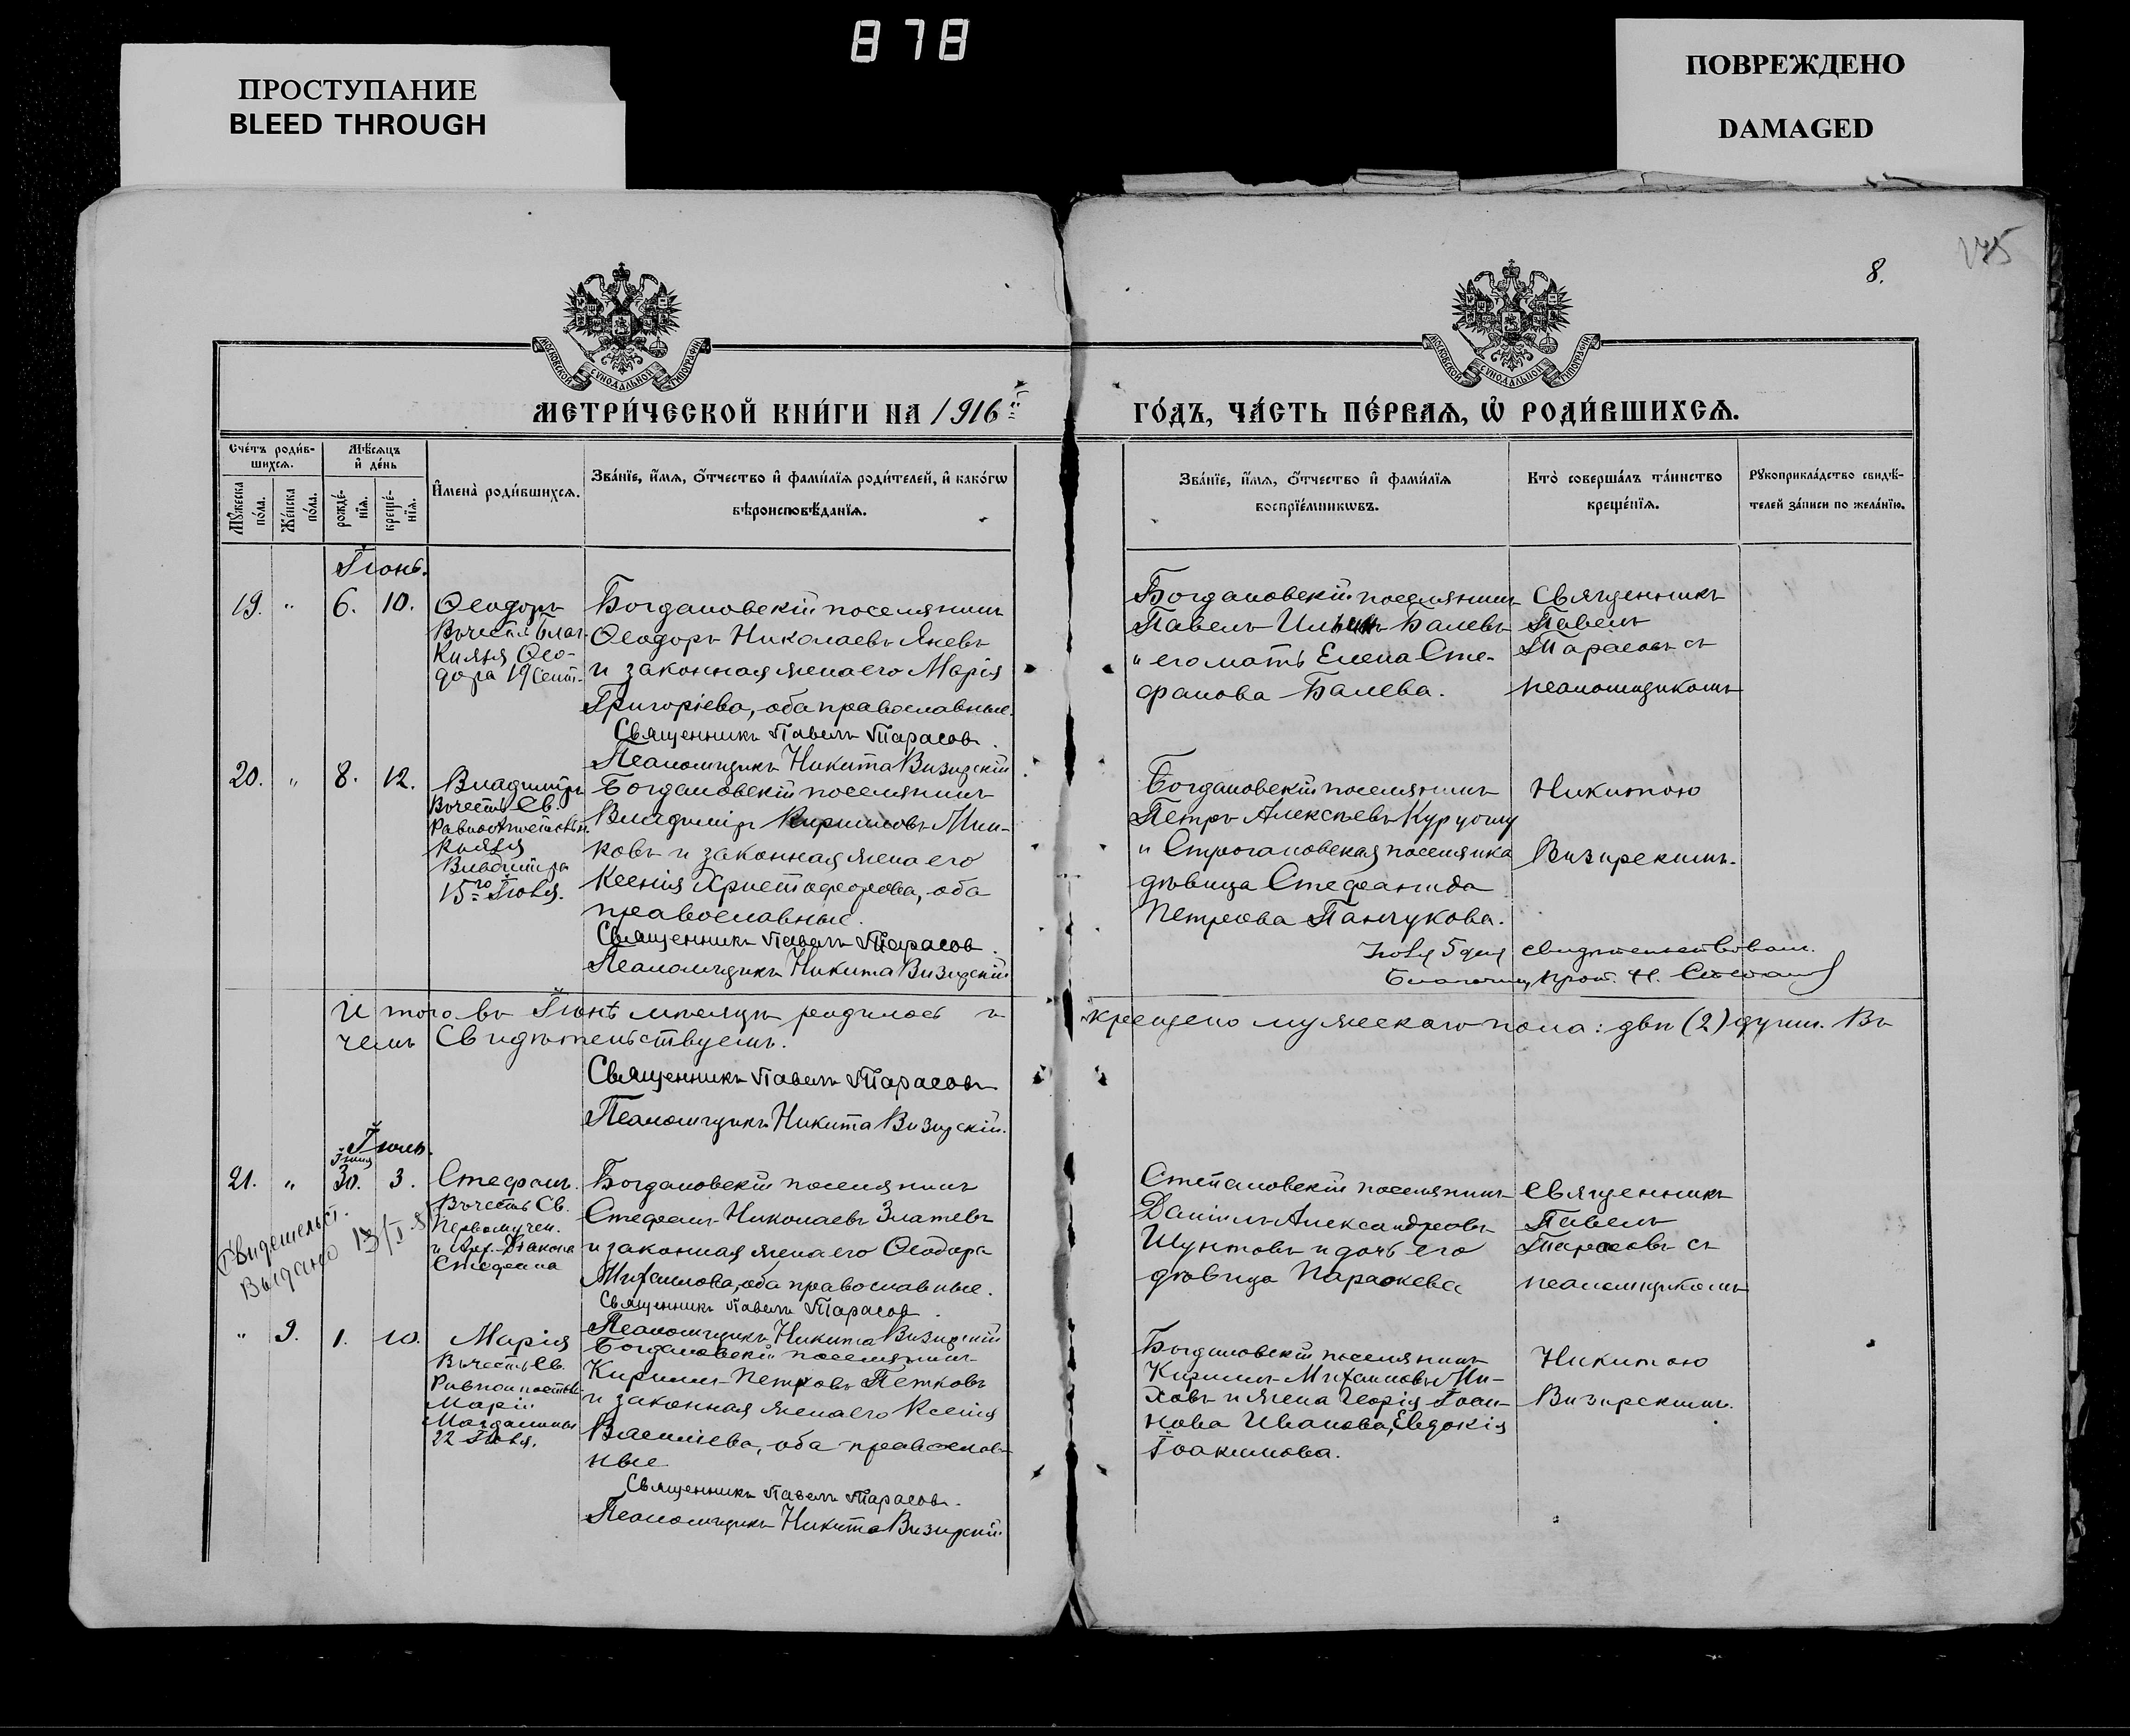 878
ПРОСТУПАНИЕ
BLEED THROUGH
ПОВРЕЖДЕНО
DAMAGED
8.
МОСКОВСКОЙ СѴНОДАЛЬНОЙ ТИПОГРАФІИ
МОСКОВСКОЙ СѴНОДАЛЬНОЙ ТИПОГРАФІИ
МЕТРИ́ЧЕСКОЙ КНИ́ГИ НА 1916
ГО́ДЪ, ЧА́СТЬ ПЕ́РВАѦ, Ѡ҆ РОДИ́ВШИХСѦ.
Сче́тъ роди́в-
шихсѧ.
Мꙋ́жеска по́ла.
Же́нска по́ла.
Мѣ́сѧцъ
и҆ де́нь
рожде́-
нїѧ.
креще́-
нїѧ.
И҆мена̀ роди́вшихсѧ.
Зва́нїе, и҆́мѧ, ѻ҆́тчество и҆ фами́лїѧ роди́телей, и҆ како́гѡ
вѣроисповѣ́данїѧ.
Зва́нїе, и҆́мѧ, ѻ҆́тчество и҆ фами́лїѧ
воспрїе́мникѡвъ.
Кто̀ соверша́лъ та́инство
креще́нїѧ.
Рꙋкоприкла́дство свидѣ́-
телей за́писи по жела́нїю.
Іюнь.
19. " 6. 10.
Ѳеодоръ
Въ честь Благ.
Князя Ѳео-
дора 19 Сент.
Богдановскій поселянинъ
Ѳеодоръ Николаевъ Яневъ
и законная жена его Марія
Григоріева, оба православные.
Священникъ Павелъ Тарасов.
Псаломщикъ Никита Визирскій
Богдановскій поселянинъ
Павелъ Балевъ
и его мать Елена Сте-
фанова Балева.
Священникъ
Павелъ
Тарасовъ съ
псаломщикомъ
20. " 8. 12.
Владиміръ
Въ честь Св.
Равноапостольн.
Князя
Владиміра
15го Іюля.
Богдановскій поселянинъ
Владиміръ Кирилловъ Мин-
ковъ и законная жена его
Ксенія Христофорова, оба
православные.
Священникъ Павелъ Тарасов.
Псаломщикъ Никита Визирскій
Богдановскій поселянинъ
Петръ Алексѣевъ
и Строгановская поселянка
дѣвица Стефанида
Петрова Панчукова.
Никитою
Визирскимъ.
Іюля 5 дня свидѣтельствовалъ.
Благочин. Прот. Н.
Итого въ Іюнѣ мѣсяцѣ родилось и
крещено мужескаго пола: двѣ (2) души. Въ
чемъ Свидѣтельствуемъ.
Священникъ Павелъ Тарасовъ
Псаломщикъ Никита Визирскій.
Іюль.
Іюня
21. " 30. 3.
Свидетельст.
Выдано
Стефанъ.
Въ честь Св.
Первомучен.
и Арх. Діакона
Стефана
Богдановскій поселянинъ
Стефанъ Николаевъ Златевъ
и законная жена его Ѳеодора
Михаилова, оба православные.
Священникъ Павелъ Тарасов.
Псаломщикъ Никита Визирскій
Степановскій поселянинъ
Даніилъ Александровъ
Шунтовъ и дочь его
дѣвица Параскева
Священникъ
Павелъ
Тарасовъ съ
псаломщикомъ
" 9. 1. 10.
Марія
Въ честь Св.
Равноапостол.
Маріи
Магдалины
22 Іюля.
Богдановскій поселянинъ
Кириллъ Петровъ Петковъ
и законная жена его Ксенія
Василіева, оба православ-
ные
Священникъ Павелъ Тарасовъ.
Псаломщикъ Никита Визирскій
Богдановскій поселянинъ
Кириллъ Михаиловъ Ми-
ховъ и жена Георгія Іоан-
нова Иванова, Евдокія
Іоакимова.
Никитою
Визирскимъ.